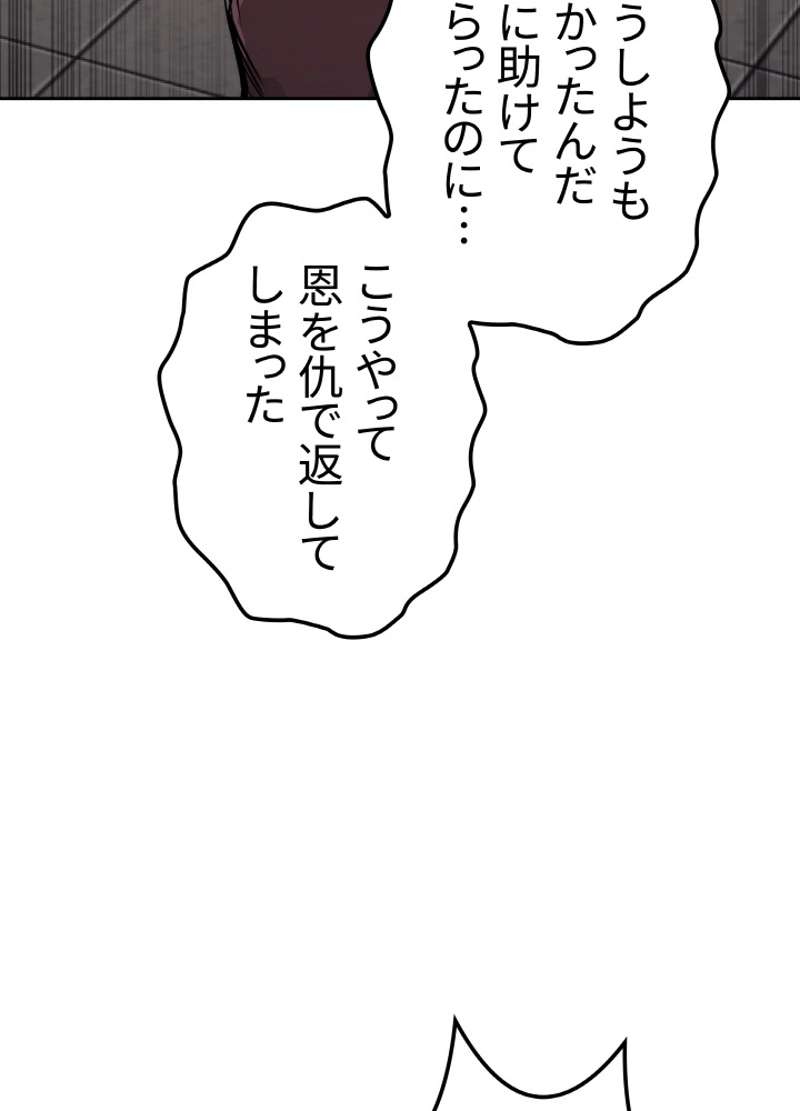 うしようも
かったんだ
に助けて
らったのに…
こうやって
恩を仇で返して
しまった